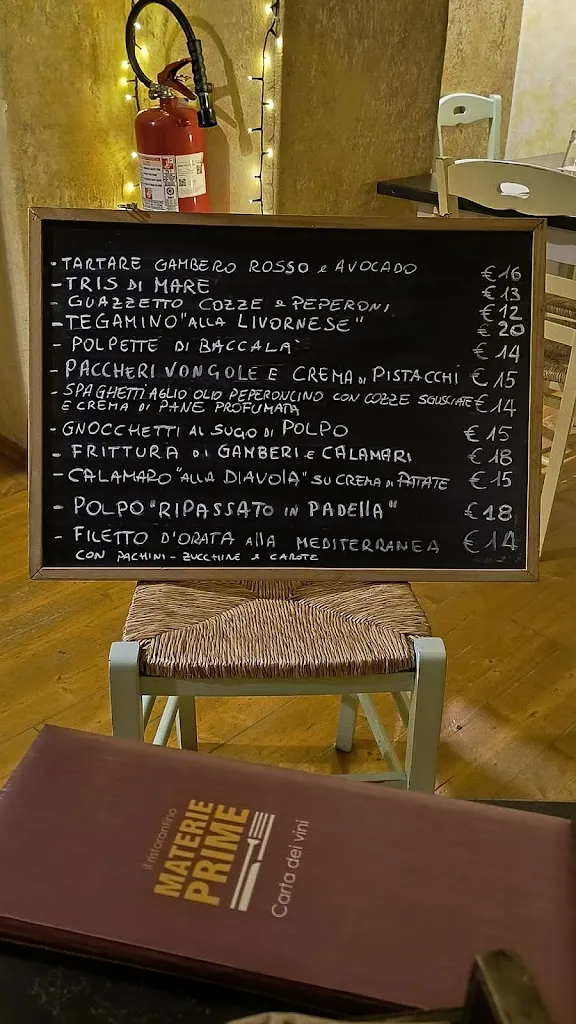 - TARTARE GAMBERO ROSSO e AVOCADO €16
- TRIS DI MARE €13
- GUAZZETTO COZZE e PEPERONI €12
- TEGAMINO "ALLA LIVORNESE" €20
- POLPETTE DI BACCALA' €14
- PACCHERI VONGOLE E CREMA DI PISTACCHI €15
- SPAGHETTI AGLIO OLIO PEPERONCINO CON COZZE SGUSCIATE €14
E CREMA DI PANE PROFUMATA
- GNOCCHETTI AL SUGO DI POLPO €15
- FRITTURA DI GAMBERI E CALAMARI €18
- CALAMARO "ALLA DIAVOLA" SU CREMA DI PATATE €15
- POLPO "RIPASSATO IN PADELLA" €18
- FILETTO D'ORATA ALLA MEDITERRANEA €14
CON PACHINI - ZUCCHINE e CAROTE
il ristorantino
MATERIE
PRIME
Carta dei vini